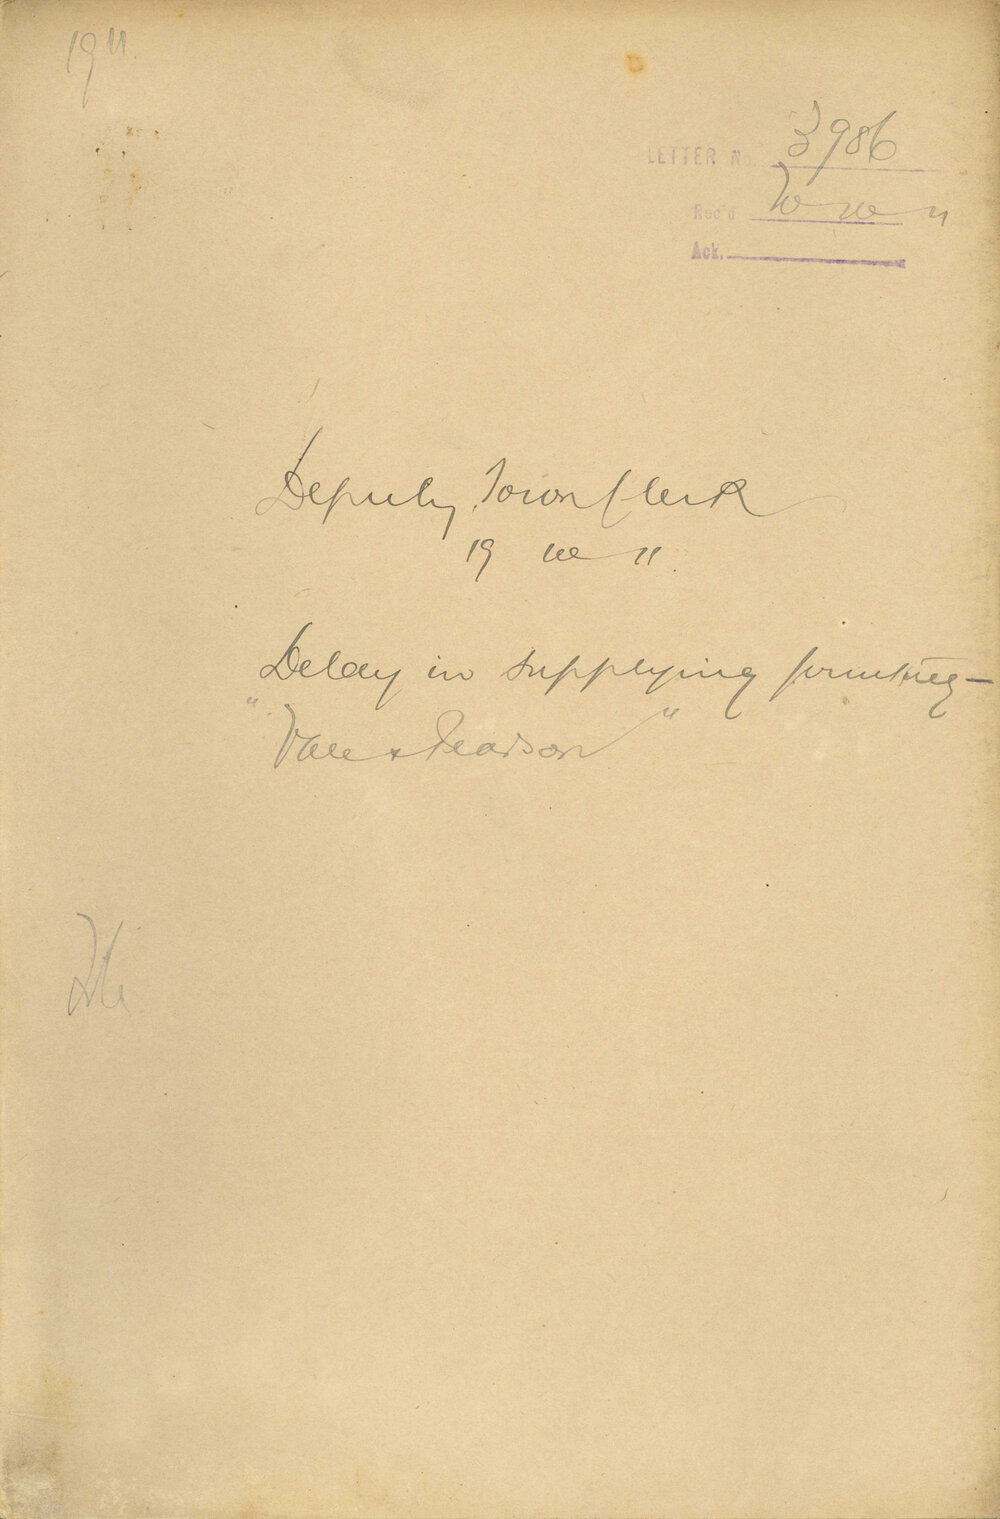 1911.
LETTER No. 3986
Rec'd
Ack.
Deputy Town Clerk
19 11.
Delay in supplying printing —
"Vale & Pearson"